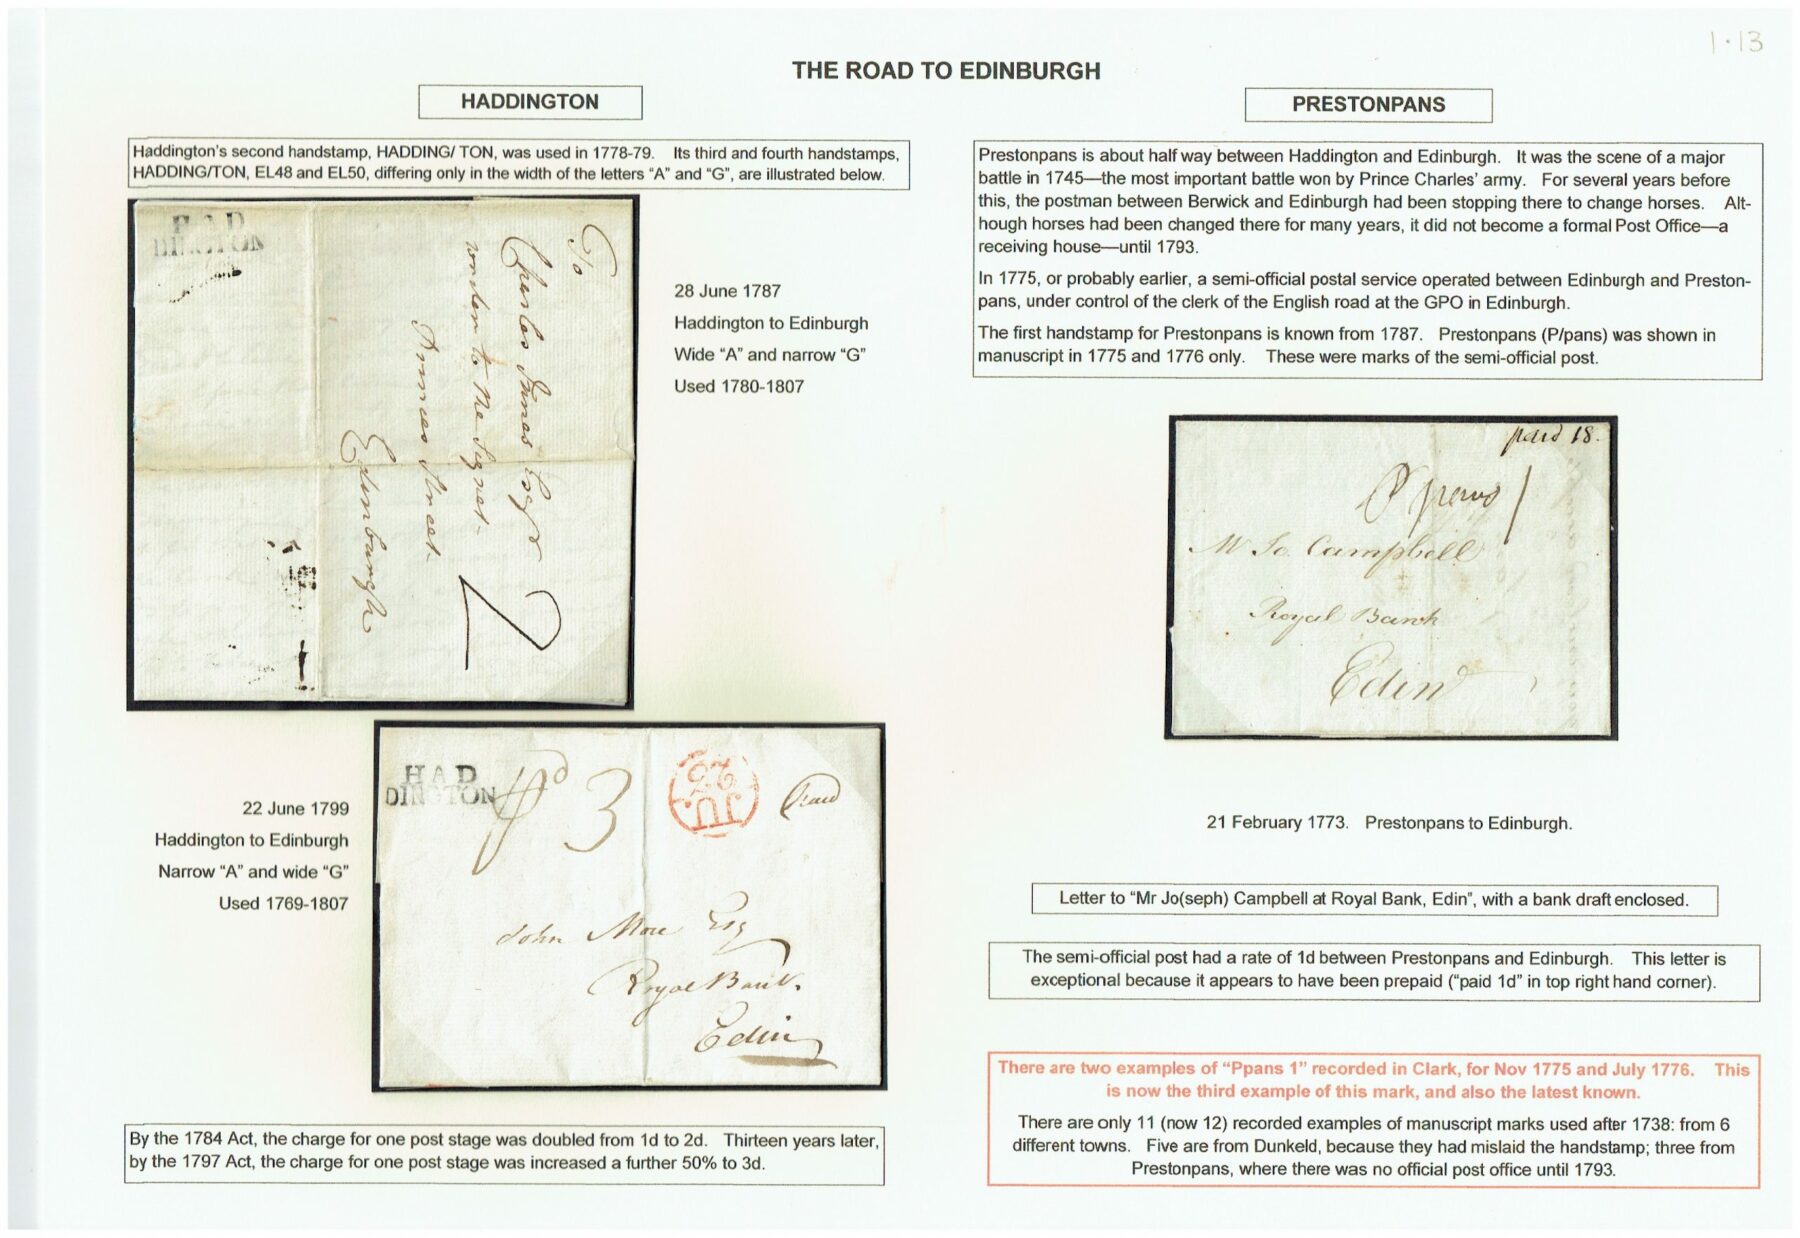 1·13
THE ROAD TO EDINBURGH
HADDINGTON
Haddington's second handstamp, HADDING/ TON, was used in 1778-79. Its third and fourth handstamps,
HADDING/TON, EL48 and EL50, differing only in the width of the letters "A" and "G", are illustrated below.
HAD
DINGTON
To
Charles Innes Esqr
Princes Street
Edinburgh
2
28 June 1787
Haddington to Edinburgh
Wide "A" and narrow "G"
Used 1780-1807
22 June 1799
Haddington to Edinburgh
Narrow "A" and wide "G"
Used 1769-1807
HAD
DINGTON
pd 3
JU
Paid
John More Esq
Royal Bank.
Edin
By the 1784 Act, the charge for one post stage was doubled from 1d to 2d. Thirteen years later,
by the 1797 Act, the charge for one post stage was increased a further 50% to 3d.
PRESTONPANS
Prestonpans is about half way between Haddington and Edinburgh. It was the scene of a major
battle in 1745—the most important battle won by Prince Charles' army. For several years before
this, the postman between Berwick and Edinburgh had been stopping there to change horses. Alt-
hough horses had been changed there for many years, it did not become a formal Post Office—a
receiving house—until 1793.
In 1775, or probably earlier, a semi-official postal service operated between Edinburgh and Preston-
pans, under control of the clerk of the English road at the GPO in Edinburgh.
The first handstamp for Prestonpans is known from 1787. Prestonpans (P/pans) was shown in
manuscript in 1775 and 1776 only. These were marks of the semi-official post.
paid 1d.
Ppans 1
Mr Jo. Campbell
Royal Bank
Edinr
21 February 1773. Prestonpans to Edinburgh.
Letter to "Mr Jo(seph) Campbell at Royal Bank, Edin", with a bank draft enclosed.
The semi-official post had a rate of 1d between Prestonpans and Edinburgh. This letter is
exceptional because it appears to have been prepaid ("paid 1d" in top right hand corner).
There are two examples of "Ppans 1" recorded in Clark, for Nov 1775 and July 1776. This
is now the third example of this mark, and also the latest known.
There are only 11 (now 12) recorded examples of manuscript marks used after 1738: from 6
different towns. Five are from Dunkeld, because they had mislaid the handstamp; three from
Prestonpans, where there was no official post office until 1793.